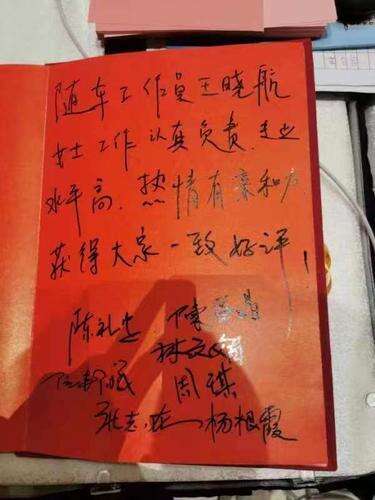 随车工作员王晓航
女士工作认真负责、专业
水平高、热情有亲和力
获得大家一致好评！
陈礼忠
林文
周琪
张志 杨根霞